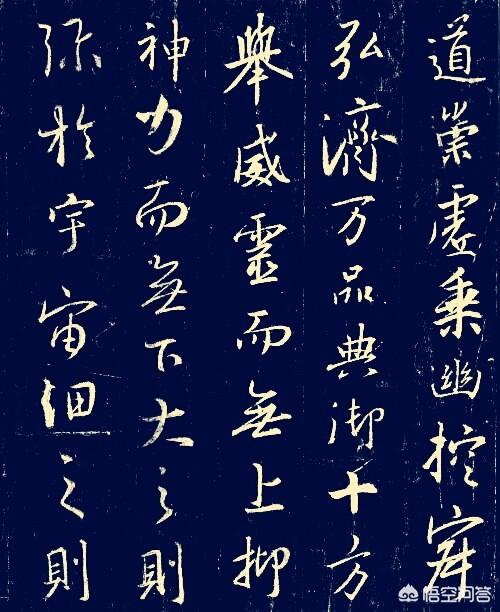 道崇虚乘幽控寂
弘济万品典御十方
舉威靈而無上抑
神力而無下大之則
弥於宇宙细之則
悟空问答